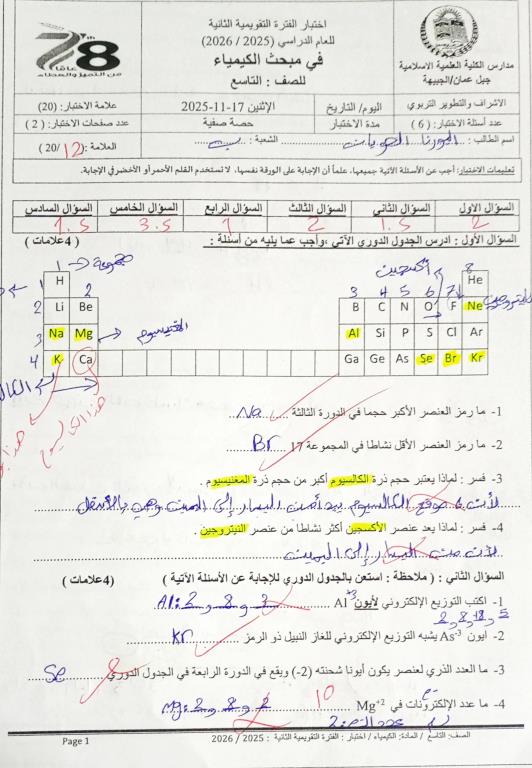 اختبار الفترة التقويمية الثانية
للعام الدراسي (2025 / 2026)
في مبحث الكيمياء
للصف : التاسع
78 عامًا
من التميز والعطاء
مدارس الكلية العلمية الاسلامية
جبل عمان/الجبيهة
الاشراف والتطوير التربوي
اليوم/ التاريخ
الإثنين 17-11-2025
علامة الاختبار: (20)
عدد أسئلة الاختبار: ( 6 )
مدة الاختبار
حصة صفية
عدد صفحات الاختبار: ( 2 )
اسم الطالب:
الشعبة: ب
العلامة: (12 /20)
تعليمات الاختبار: أجب عن الأسئلة الآتية جميعها، علماً أن الإجابة على الورقة نفسها، لا تستخدم القلم الأحمر أو الأخضر في الإجابة.
السؤال الأول السؤال الثاني السؤال الثالث السؤال الرابع السؤال الخامس السؤال السادس
2 1.5 2 1 3.5 1.5
السؤال الأول : ادرس الجدول الدوري الآتي ،وأجب عما يليه من أسئلة : (4علامات )
1 مجموعة
أكسجين
8
1 H He
2
2 Li Be
3 4 5 6 7
B C N O F Ne
3 Na Mg المغنيسيوم
Al Si P S Cl Ar
4 K Ca
Ga Ge As Se Br Kr
هذا الكالسيوم
1- ما رمز العنصر الأكبر حجما في الدورة الثالثة Na
2- ما رمز العنصر الأقل نشاطا في المجموعة 17 Br
3- فسر : لماذا يعتبر حجم ذرة الكالسيوم أكبر من حجم ذرة المغنيسيوم .
لأن موقع الكالسيوم يبدأ من اليسار إلى اليمين
4- فسر : لماذا يعد عنصر الأكسجين أكثر نشاطا من عنصر النيتروجين .
لأن من اليسار إلى اليمين
السؤال الثاني : ( ملاحظة : استعن بالجدول الدوري للإجابة عن الأسئلة الآتية ) (4علامات )
1- اكتب التوزيع الإلكتروني لأيون Al⁺³ Al: 2, 8, 3
2, 8, 18, 5
2- ايون As⁻³ يشبه التوزيع الإلكتروني للغاز النبيل ذو الرمز Kr
3- ما العدد الذري لعنصر يكون أيونا شحنته (2-) ويقع في الدورة الرابعة في الجدول الدوري Se
4- ما عدد الإلكترونات في Mg⁺² Mg: 2, 8, 2 10
الصف: التاسع / المادة: الكيمياء / اختبار : الفترة التقويمية الثانية : 2025 / 2026
Page 1